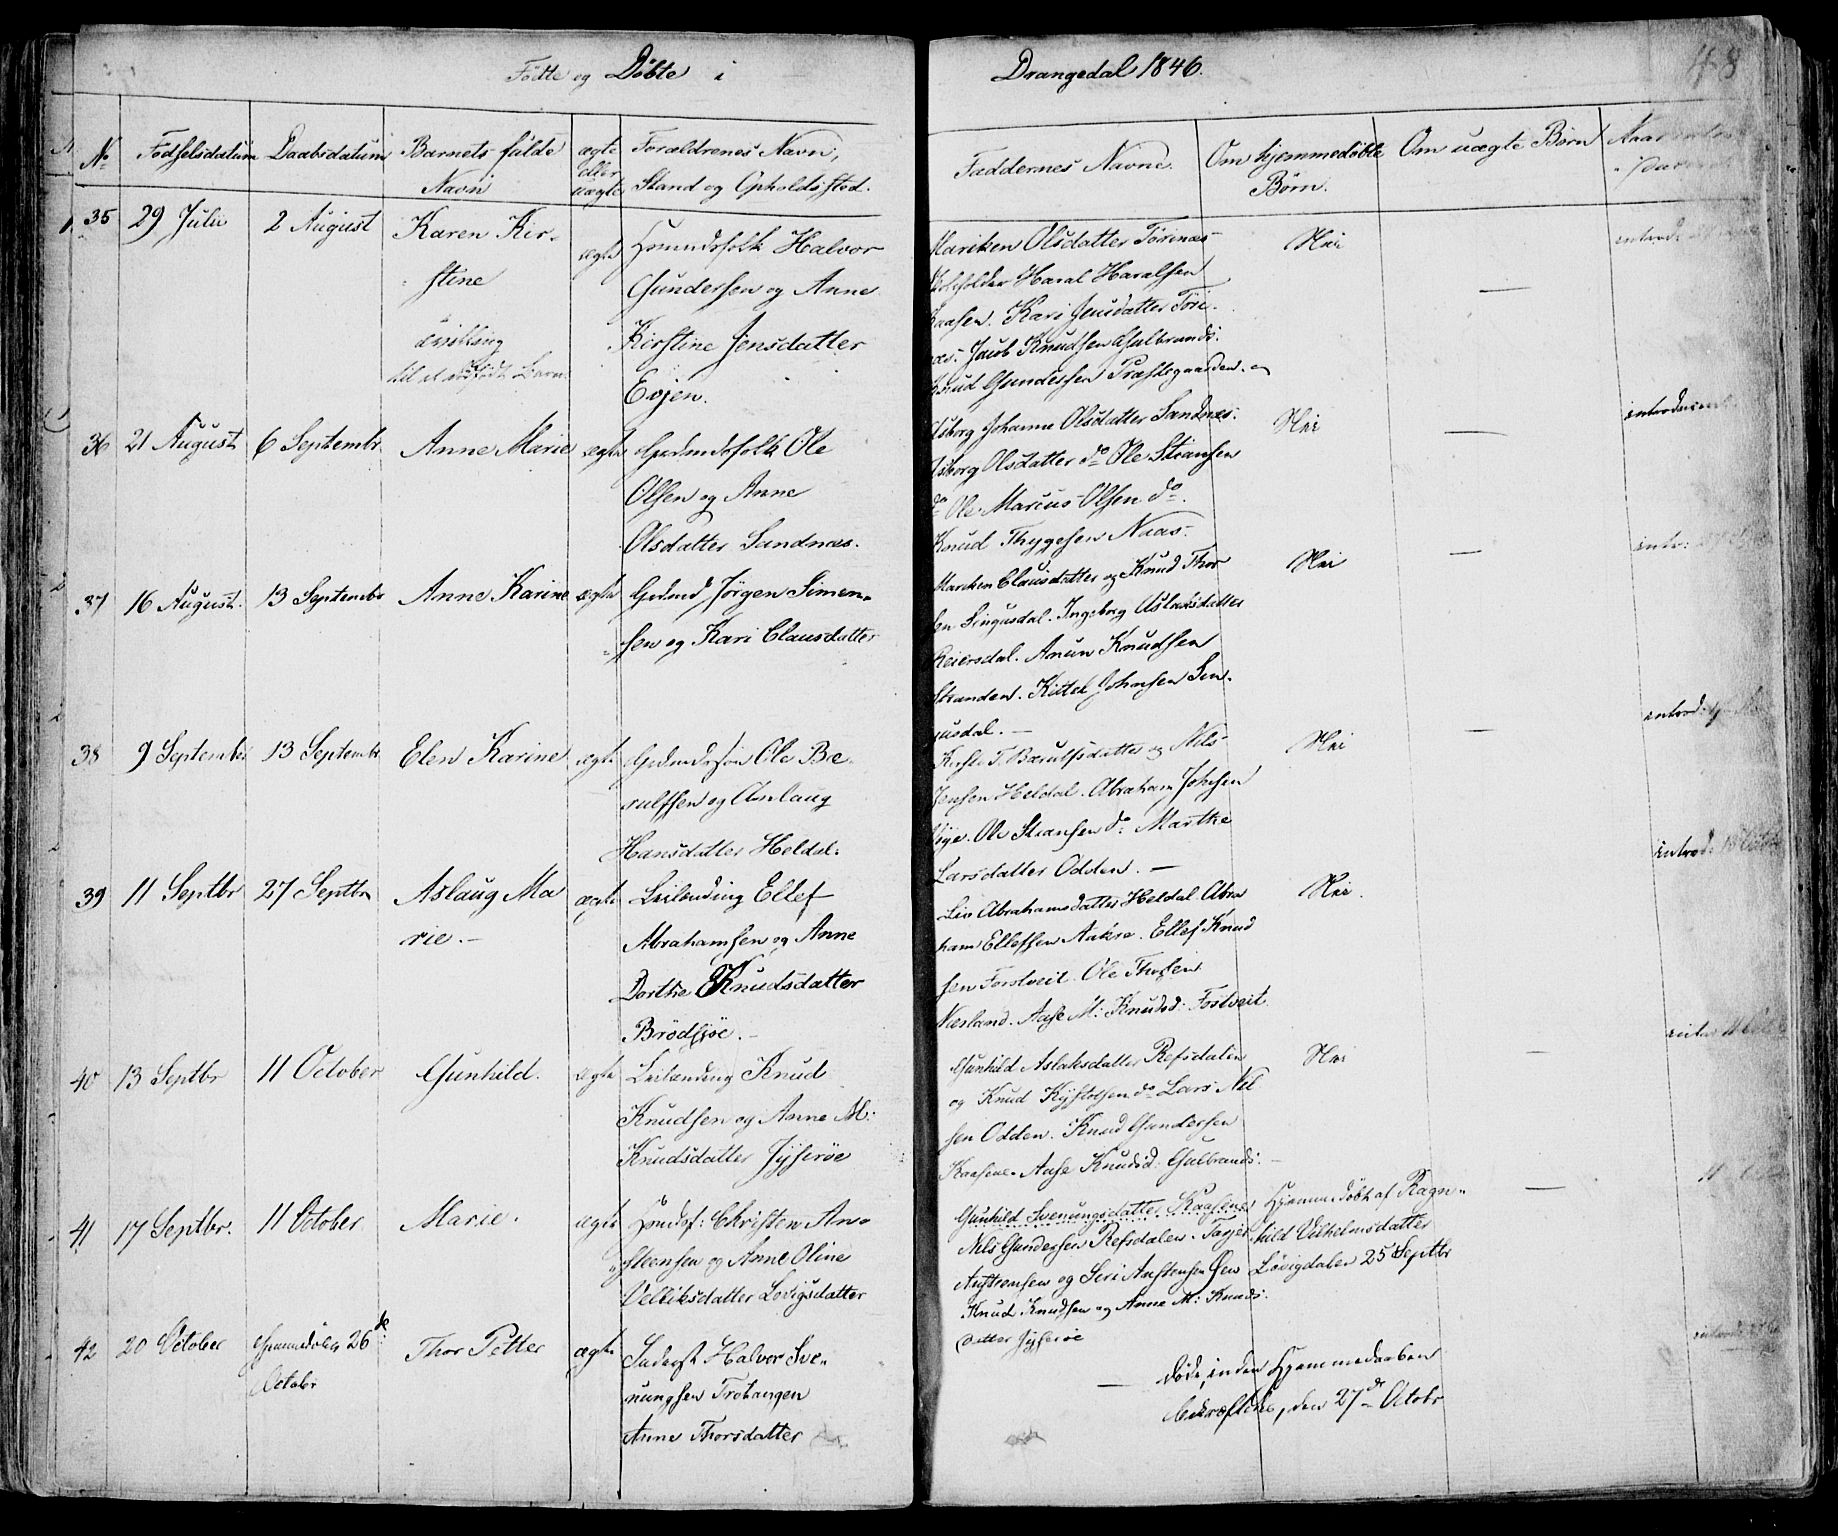 Fødte og Døbte i Drangedal 1846.
48
No
Fødselsdatum
Daabsdatum
Barnets fulde Navn
ægte eller uægte
Forældrenes Navn, Stand og Opholdssted.
Faddernes Navne.
Om hjemmedøbte Børn.
Om uægte Børn
35
29 Julii
2 August
Karen Kir-
stine
tvilling
til et dødfødt Barn
ægte
Huusmdsfolk Halvor
Gundersen og Anne
Kirstine Jensdatter
Eojen.
Mariken Olsdatter Törinæs-
Haral Haralsen
Kaasen. Kari Jensdatter Töri-
næs. Jacob Knudsen Gulbrands.
Knud Gundersen Præstegaarden.
Nei
—
36
21 August
6 Septembr
Anne Marie
ægte
Gaardmdsfolk Ole
Olsen og Anne
Olsdatter Sandnæs.
Johanne Olsdatter Sandnæs.
Olsdatter do Ole Stiansen
do Ole Marcus Olsen do.
Knud Thygesen Naas.
Nei
—
introduceret
37
16 August.
13 Septembr
Anne Karine
ægte
Grdmd Jörgen Simen-
sen og Kari Clausdatter
Mariken Clausdatter og Knud Thor
sen Singusdal. Ingeborg Aslaksdatter
Reiersdal. Anun Knudsen
Stranden. Kittel Johnsen Sin-
gusdal. —
Nei
—
intr:
38
9 Septembr
13 Septembr
Elen Karine
ægte
Grdmdssön Ole Be-
rulfsen og Aslaug
Hansdatter Heldal.
Berulfsdatter og Nils
Jensen Heldal. Abraham Johnsen
Vige. Ole Stiansen do Marthe
Larsdatter Odden. —
Nei
—
introd:
39
11 Septbr
27 Septbr
Aslaug Ma
rie. —
ægte
Leilending Ellef
Abrahamsen og Anne
Dorthe Knudsdatter
Brödsjöe. —
Liv Abrahamsdatter Heldal Abra
ham Ellefsen Aakre. Ellef Knud
sen Forstveit. Ole Thorsen
Næsland. Aase M: Knudsd: Fostveit
Nei.
introd:
40
13 Septbr
11 October
Gunhild.
ægte
Leilending Knud
Knudsen og Anne M:
Knudsdatter Jyserøe
Gunhild Aslaksdatter Refsdalen
og Knud do Lars Nil
sen Odden. Knud Gundersen
Kaasene. Aase Knudsd. Gulbrands.
Nei
—
41
17 Septbr.
11 October
Marie.
ægte
Christen An-
steensen og Anne Oline
Gunhild Svenungsdatter Kaasene,
Nils Gundersen Refsdalen. Tarjer
Austeensen og Siri Austensen Øen
Knud Knudsen og Anne M: Knuds-
datter Jyseröe
Hjemmedöbt af Ragn-
hild Vilhelmsdatter
Lövigdalen 25 Septbr
—
42
20 October
Hjemmedöbt 26de
Octobr
Thor Petter
ægte
Inderst Halvor Sve-
nungsen Trotangen
Anne Thorsdatter
—
döde, inden Hjemmedaaben
bekræftedes, den 27de Octobr